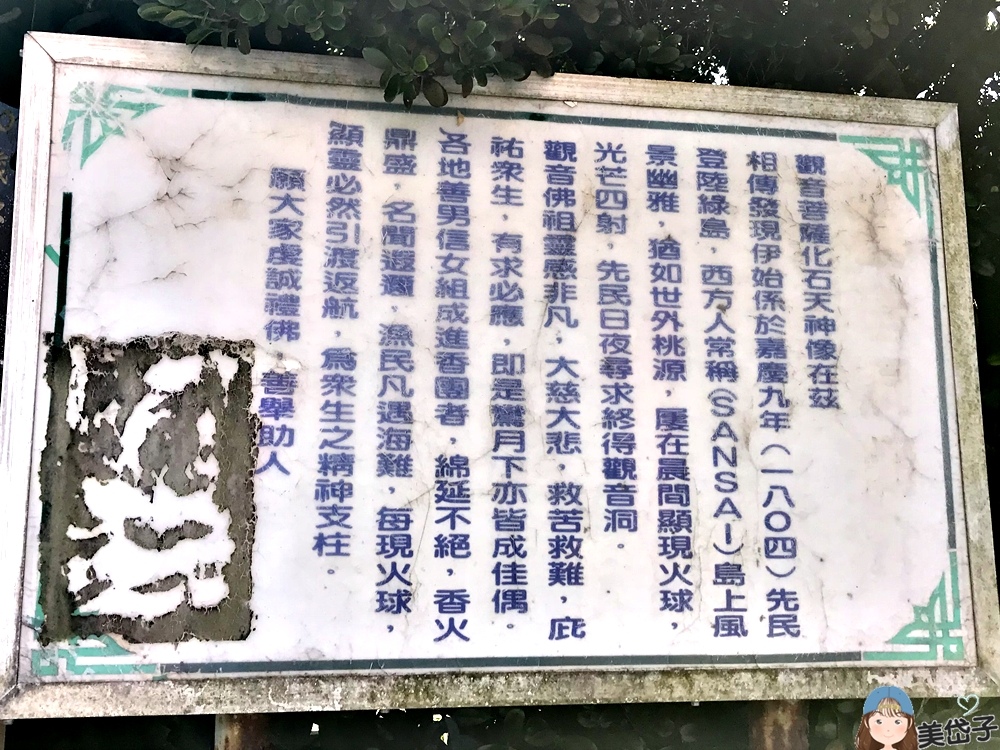 觀音菩薩化石天神像在茲
相傳發現伊始係於嘉慶九年（一八〇四）先民
登陸綠島，西方人常稱（SANSAI）島上風
景幽雅，猶如世外桃源，屢在晨間顯現火球，
光芒四射，先民日夜尋求終得觀音洞。
觀音佛祖靈感非凡，大慈大悲，救苦救難，庇
祐眾生，有求必應，即是鶯月下亦皆成佳偶。
各地善男信女組成進香團者，綿延不絕，香火
鼎盛，名聞遐邇，漁民凡遇海難，每現火球，
顯靈必然引渡返航，為眾生之精神支柱。
願大家虔誠禮佛，善舉助人
美岱子